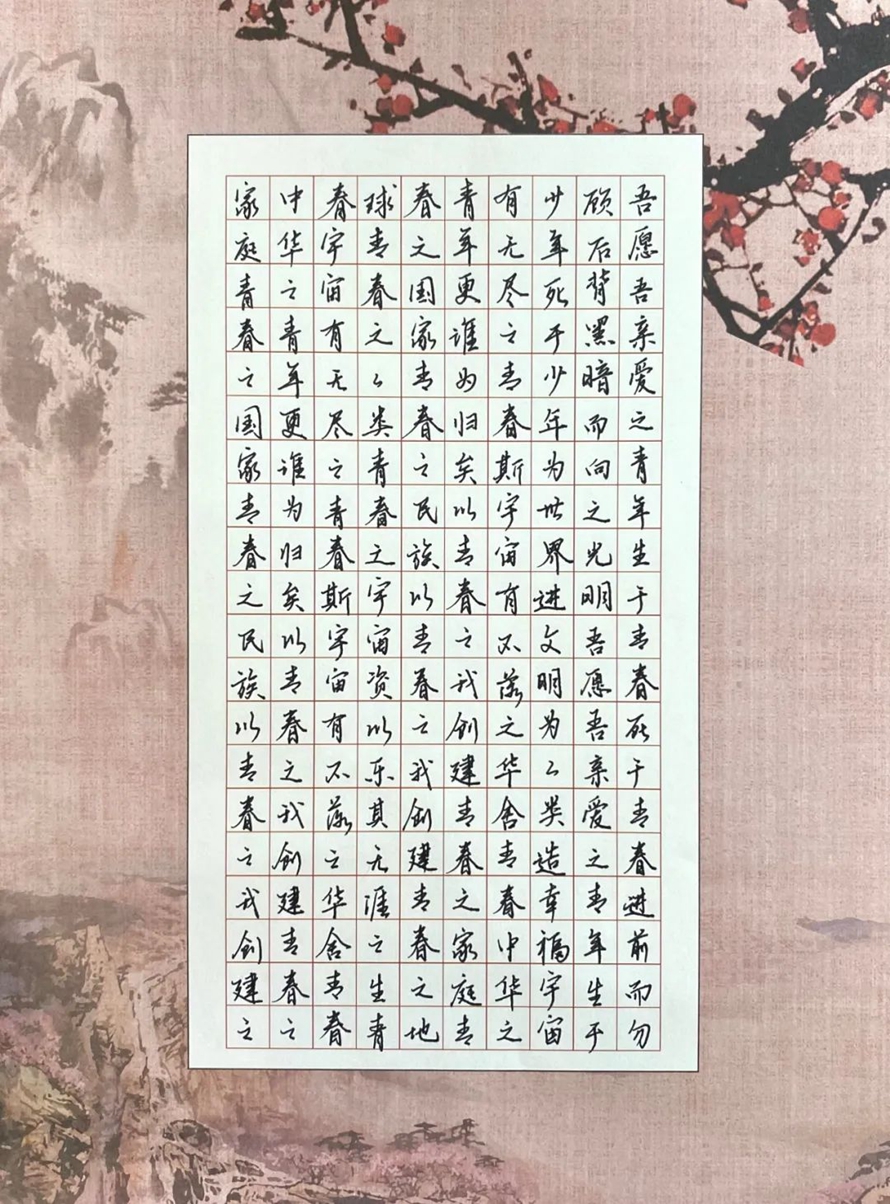 吾愿吾亲爱之青年生于青春死于青春进前而勿
顾后背黑暗而向之光明吾愿吾亲爱之青年生于
少年死于少年为世界进文明为人类造幸福宇宙
有无尽之青春斯宇宙有不落之华舍青春中华之
青年更谁为归矣以青春之我创建青春之家庭青
春之国家青春之民族以青春之我创建青春之地
球青春之人类青春之宇宙资以乐其无涯之生青
春宇宙有无尽之青春斯宇宙有不落之华舍青春
中华之青年更谁为归矣以青春之我创建青春之
家庭青春之国家青春之民族以青春之我创建之